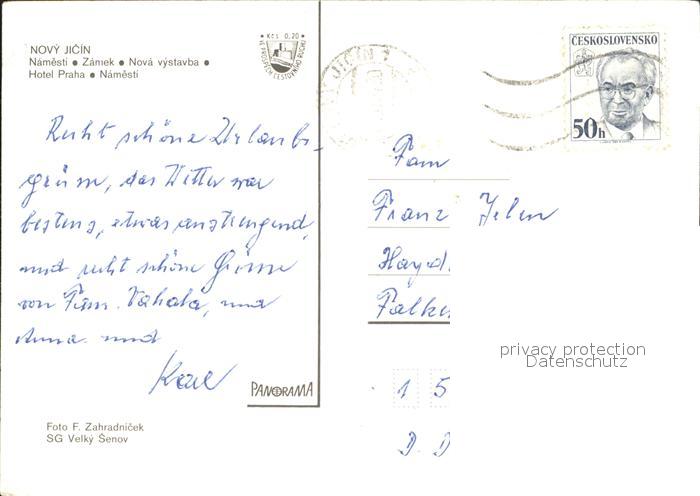 NOVÝ JIČÍN
Náměstí ● Zámek ● Nová výstavba ●
Hotel Praha ● Náměstí
Kčs 0,20
VE PROSPĚCH CESTOVNÍHO RUCHU
JIČÍN 1
ČESKOSLOVENSKO
50h
Recht schöne Urlaubs-
grüsse, das Wetter war
bestens, etwas anstrengend,
und recht schöne Grüsse
von Fam. Vahala, und
Anna und
Karl
Fam
Franz Jelen
Hayd
Falke
1 5
D. D
PANORAMA
privacy protection
Datenschutz
Foto F. Zahradníček
SG Velký Šenov